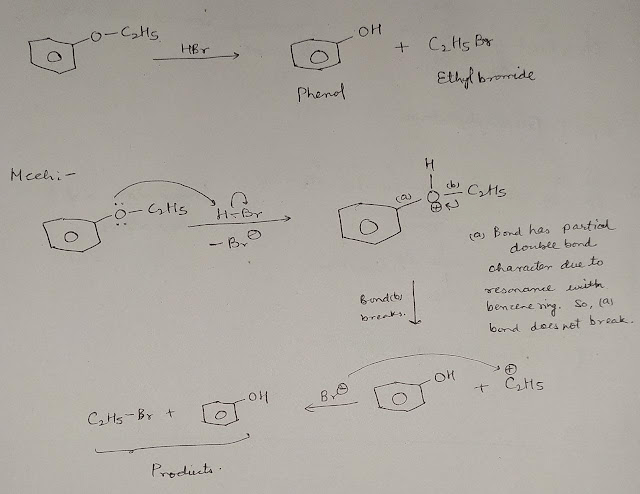 O-C₂H₅
HBr
OH
+ C₂H₅Br
Phenol
Ethyl bromide
Mech:-
Ö-C₂H₅
H-Br
- Br⊖
H
(a) O⊕ (b) C₂H₅
(a) Bond has partial
double bond
character due to
resonance with
benzene ring. So, (a)
bond does not break.
Bond(b)
breaks.
C₂H₅-Br +
OH
Br⊖
OH
+ C₂H₅⊕
Products.